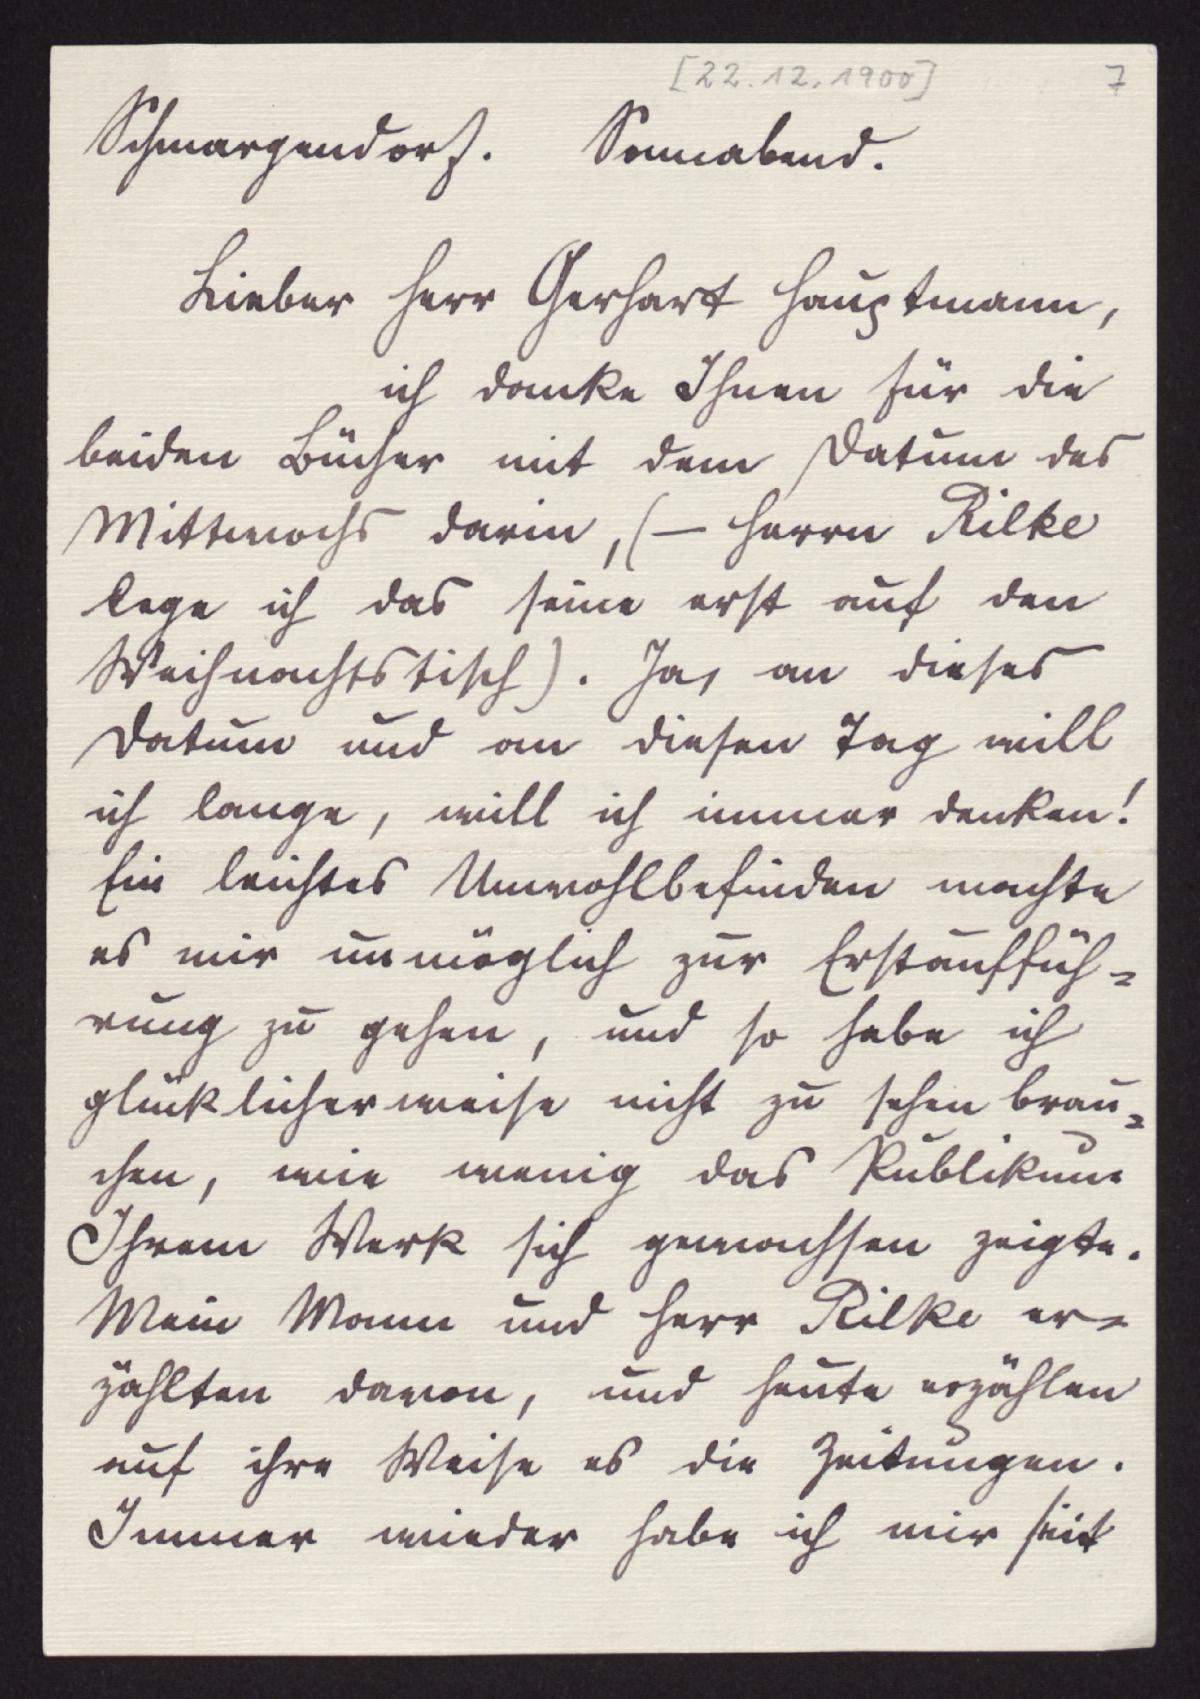 [22.12.1900] 7
Schmargendorf. Sonnabend.
Lieber Herr Gerhart Hauptmann,
ich danke Ihnen für die
beiden Bücher mit dem Datum des
Mittwochs darin, (— Herrn Rilke
lege ich das seine erst auf den
Weihnachtstisch). Ja, an dieses
Datum und an diesen Tag will
ich lange, will ich immer denken!
Ein leichtes Unwohlbefinden machte
es mir unmöglich zur Erstauffüh=
rung zu gehen, und so habe ich
glücklicherweise nicht zu sehen brau=
chen, wie wenig das Publikum
Ihrem Werk sich gewachsen zeigte.
Mein Mann und Herr Rilke er=
zählten davon, und heute erzählen
auf ihre Weise es die Zeitungen.
Immer wieder habe ich mir seit